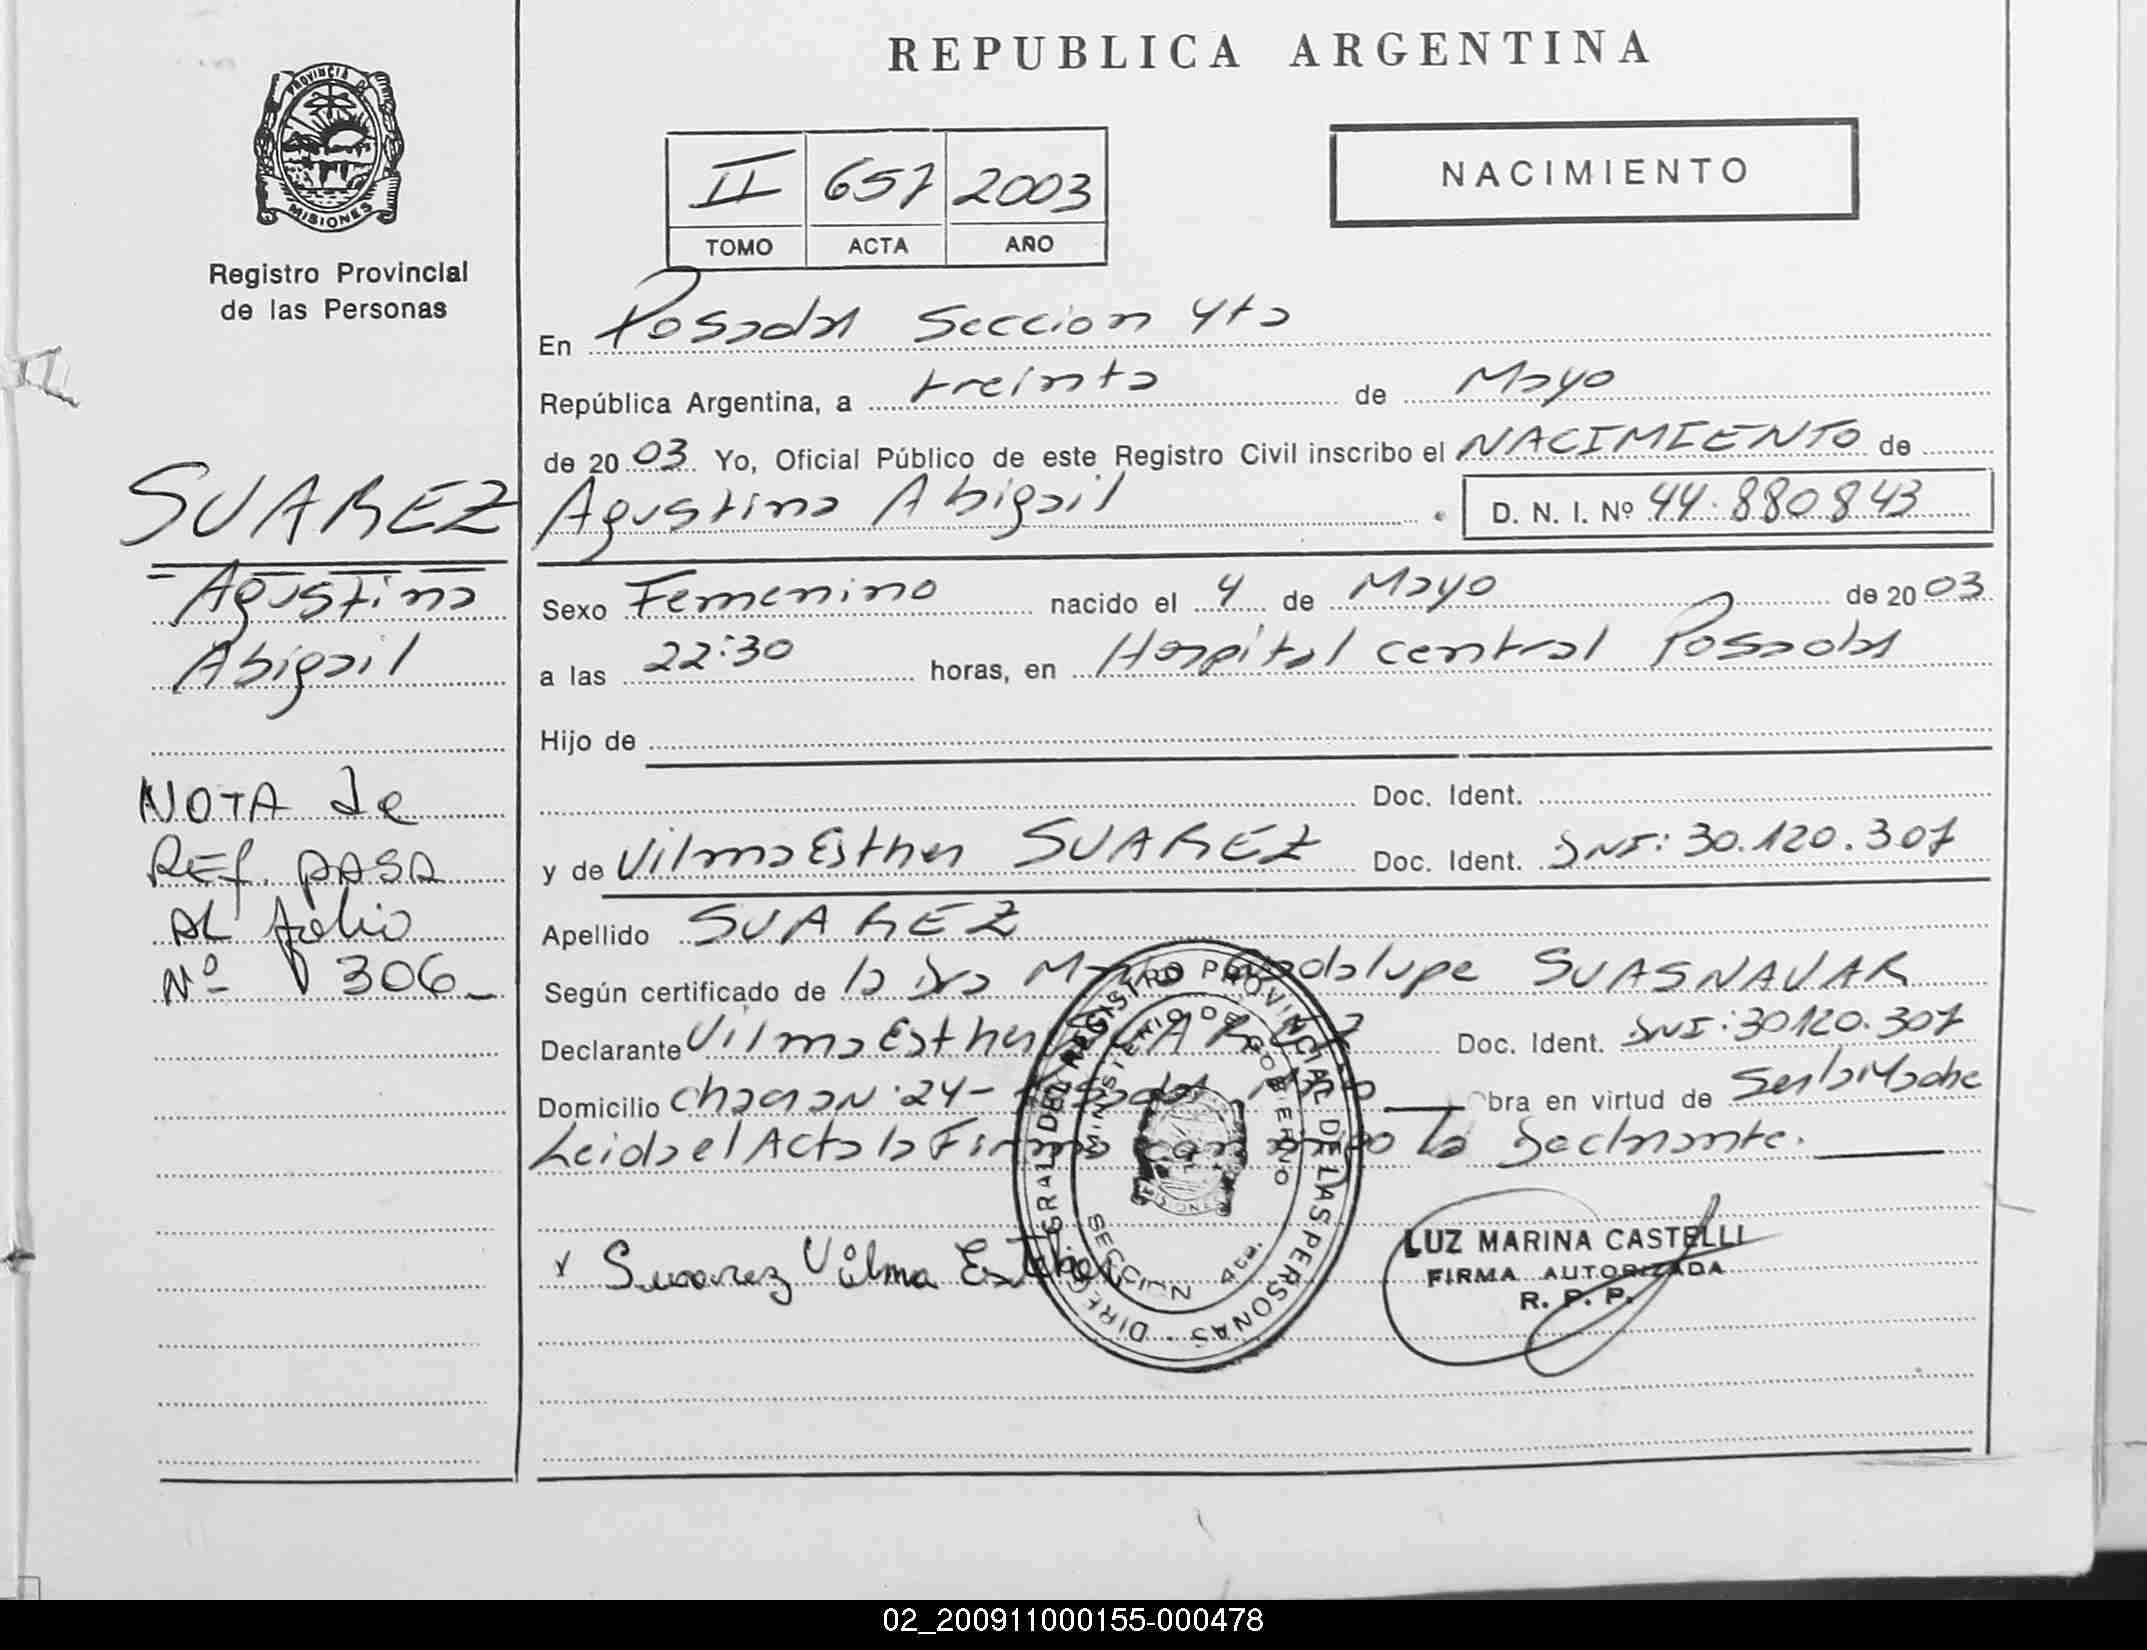 PROVINCIA DE
MISIONES
Registro Provincial
de las Personas
SUAREZ
Agustina
Abigail
NOTA de
REF. PASA
AL folio
Nº 306_
REPUBLICA ARGENTINA
NACIMIENTO
II 657 2003
TOMO ACTA AÑO
En Posadas Seccion 4ta
República Argentina, a treinta de Mayo
de 2003 Yo, Oficial Público de este Registro Civil inscribo el NACIMIENTO de
Agustina Abigail . D. N. I. Nº 44.880.843
Sexo Femenino nacido el 4 de Mayo de 2003
a las 22:30 horas, en Hospital central Posadas
Hijo de
Doc. Ident.
y de Vilma Esther SUAREZ Doc. Ident. DNI: 30.120.307
Apellido SUAREZ
Según certificado de la Dra Maria Guadalupe SUASNAVAR
Declarante Vilma Esther SUAREZ Doc. Ident. DNI: 30120.307
Domicilio Chacra Nº 24- Posadas Obra en virtud de Ser la Madre
Leida el Acta la Firma conmigo la Declarante.
x Suarez Vilma Esther
DIREC. GRAL. DEL REGISTRO PROVINCIAL DE LAS PERSONAS
MINISTERIO DE GOBIERNO
SECCION 4ta.
LUZ MARINA CASTELLI
FIRMA AUTORIZADA
R. P. P.
02_200911000155-000478